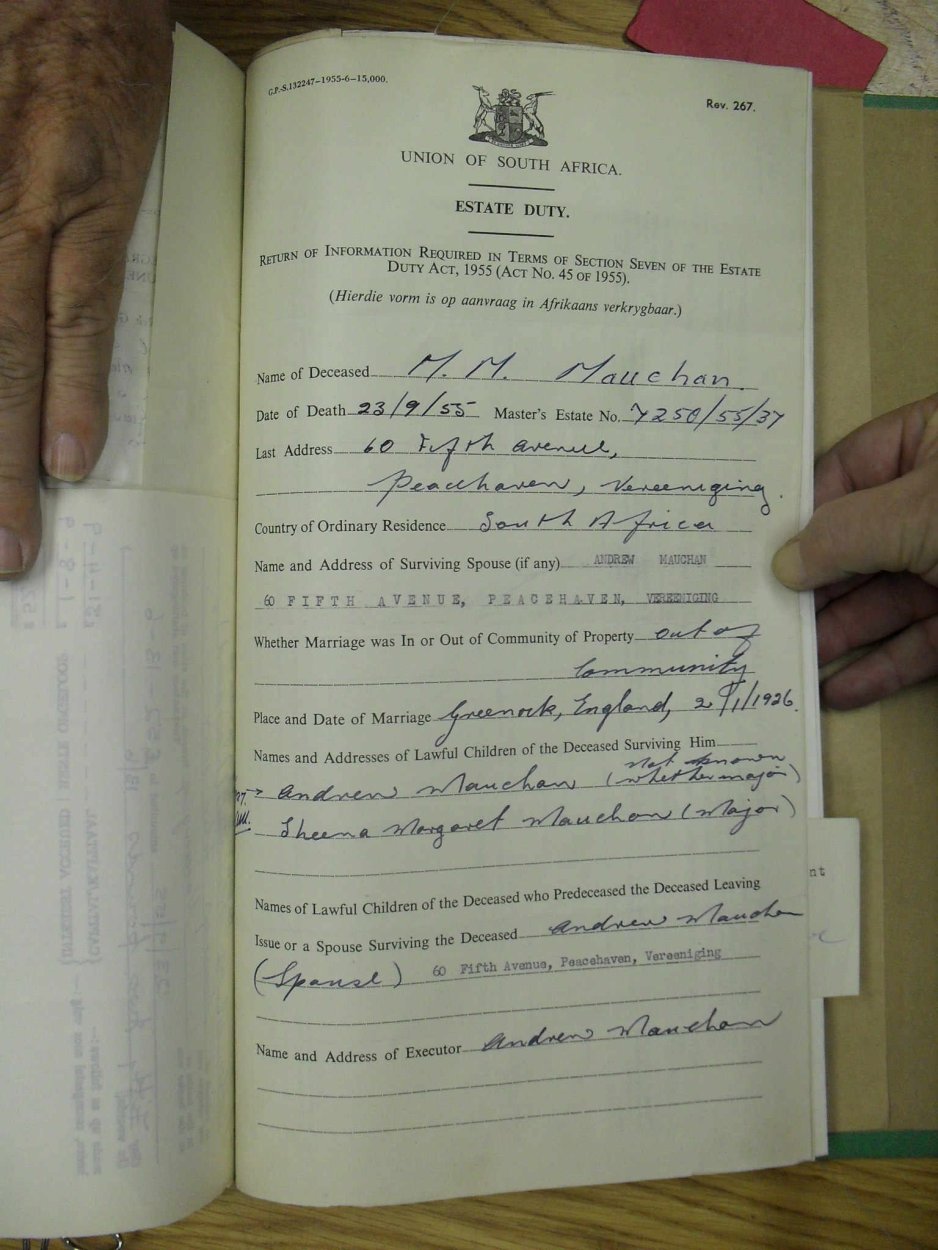 G.P.-S.132247—1955-6—15,000.
Rev. 267.
UNION OF SOUTH AFRICA.
ESTATE DUTY.
RETURN OF INFORMATION REQUIRED IN TERMS OF SECTION SEVEN OF THE ESTATE
DUTY ACT, 1955 (ACT NO. 45 OF 1955).
(Hierdie vorm is op aanvraag in Afrikaans verkrygbaar.)
Name of Deceased M. M. Mauchan.
Date of Death 23/9/55 Master's Estate No. 7250/55/37
Last Address 60 Fifth Avenue,
Peacehaven, Vereeniging.
Country of Ordinary Residence South Africa
Name and Address of Surviving Spouse (if any) ANDREW MAUCHAN
60 FIFTH AVENUE, PEACEHAVEN, VEREENIGING
Whether Marriage was In or Out of Community of Property out of
Community
Place and Date of Marriage Greenock, England, /1/1926.
Names and Addresses of Lawful Children of the Deceased Surviving Him
Andrew Mauchan (not known whether major)
Sheena Margaret Mauchan (Major)
Names of Lawful Children of the Deceased who Predeceased the Deceased Leaving
Issue or a Spouse Surviving the Deceased Andrew Mauchan
(Spouse) 60 Fifth Avenue, Peacehaven, Vereeniging
Name and Address of Executor Andrew Mauchan